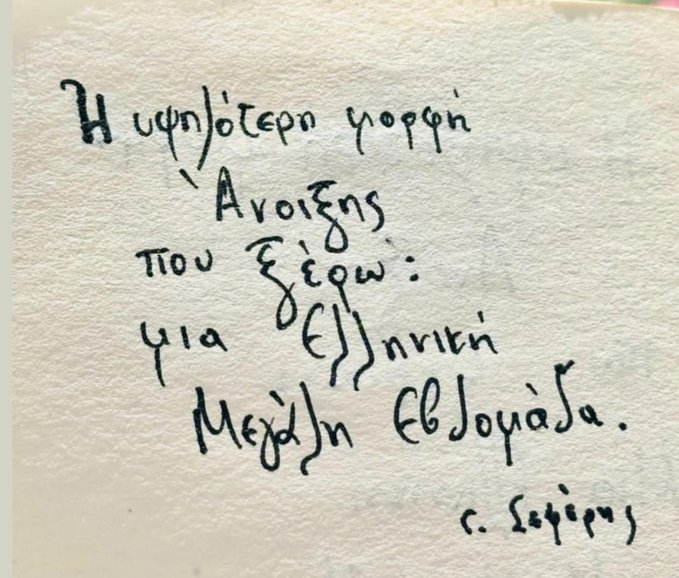 Η υψηλότερη μορφή
Άνοιξης
που ξέρω:
μια Ελληνική
Μεγάλη Εβδομάδα.
Γ. Σεφέρης